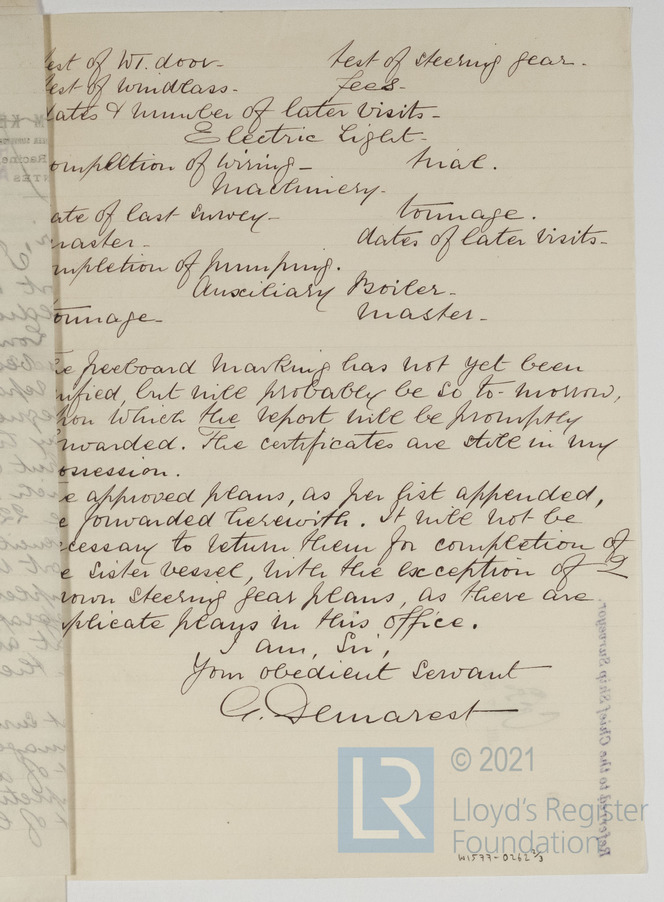 est of WT. door- test of steering gear.
est of windlass- fees-
ates & number of later visits-
Electric Light-
ompletion of wiring- trial.
Machinery-
ate of last survey- tonnage.
master- dates of later visits-
mpletion of pumping.
Auxiliary Boiler-
onnage- master-
e freeboard marking has not yet been
rified, but will probably be so to-morrow,
pon which the report will be promptly
rwarded. The certificates are still in my
ossession.
e approved plans, as per list appended,
e forwarded herewith. It will not be
cessary to return them for completion of
e sister vessel, with the exception of 2
rown steering gear plans, as there are
uplicate plans in this office.
I am, Sir,
Your obedient servant
G. Demarest
Referred to the Chief Ship Surveyor.
LR
© 2021
Lloyd's Register
Foundation
W1577-0262 2/3